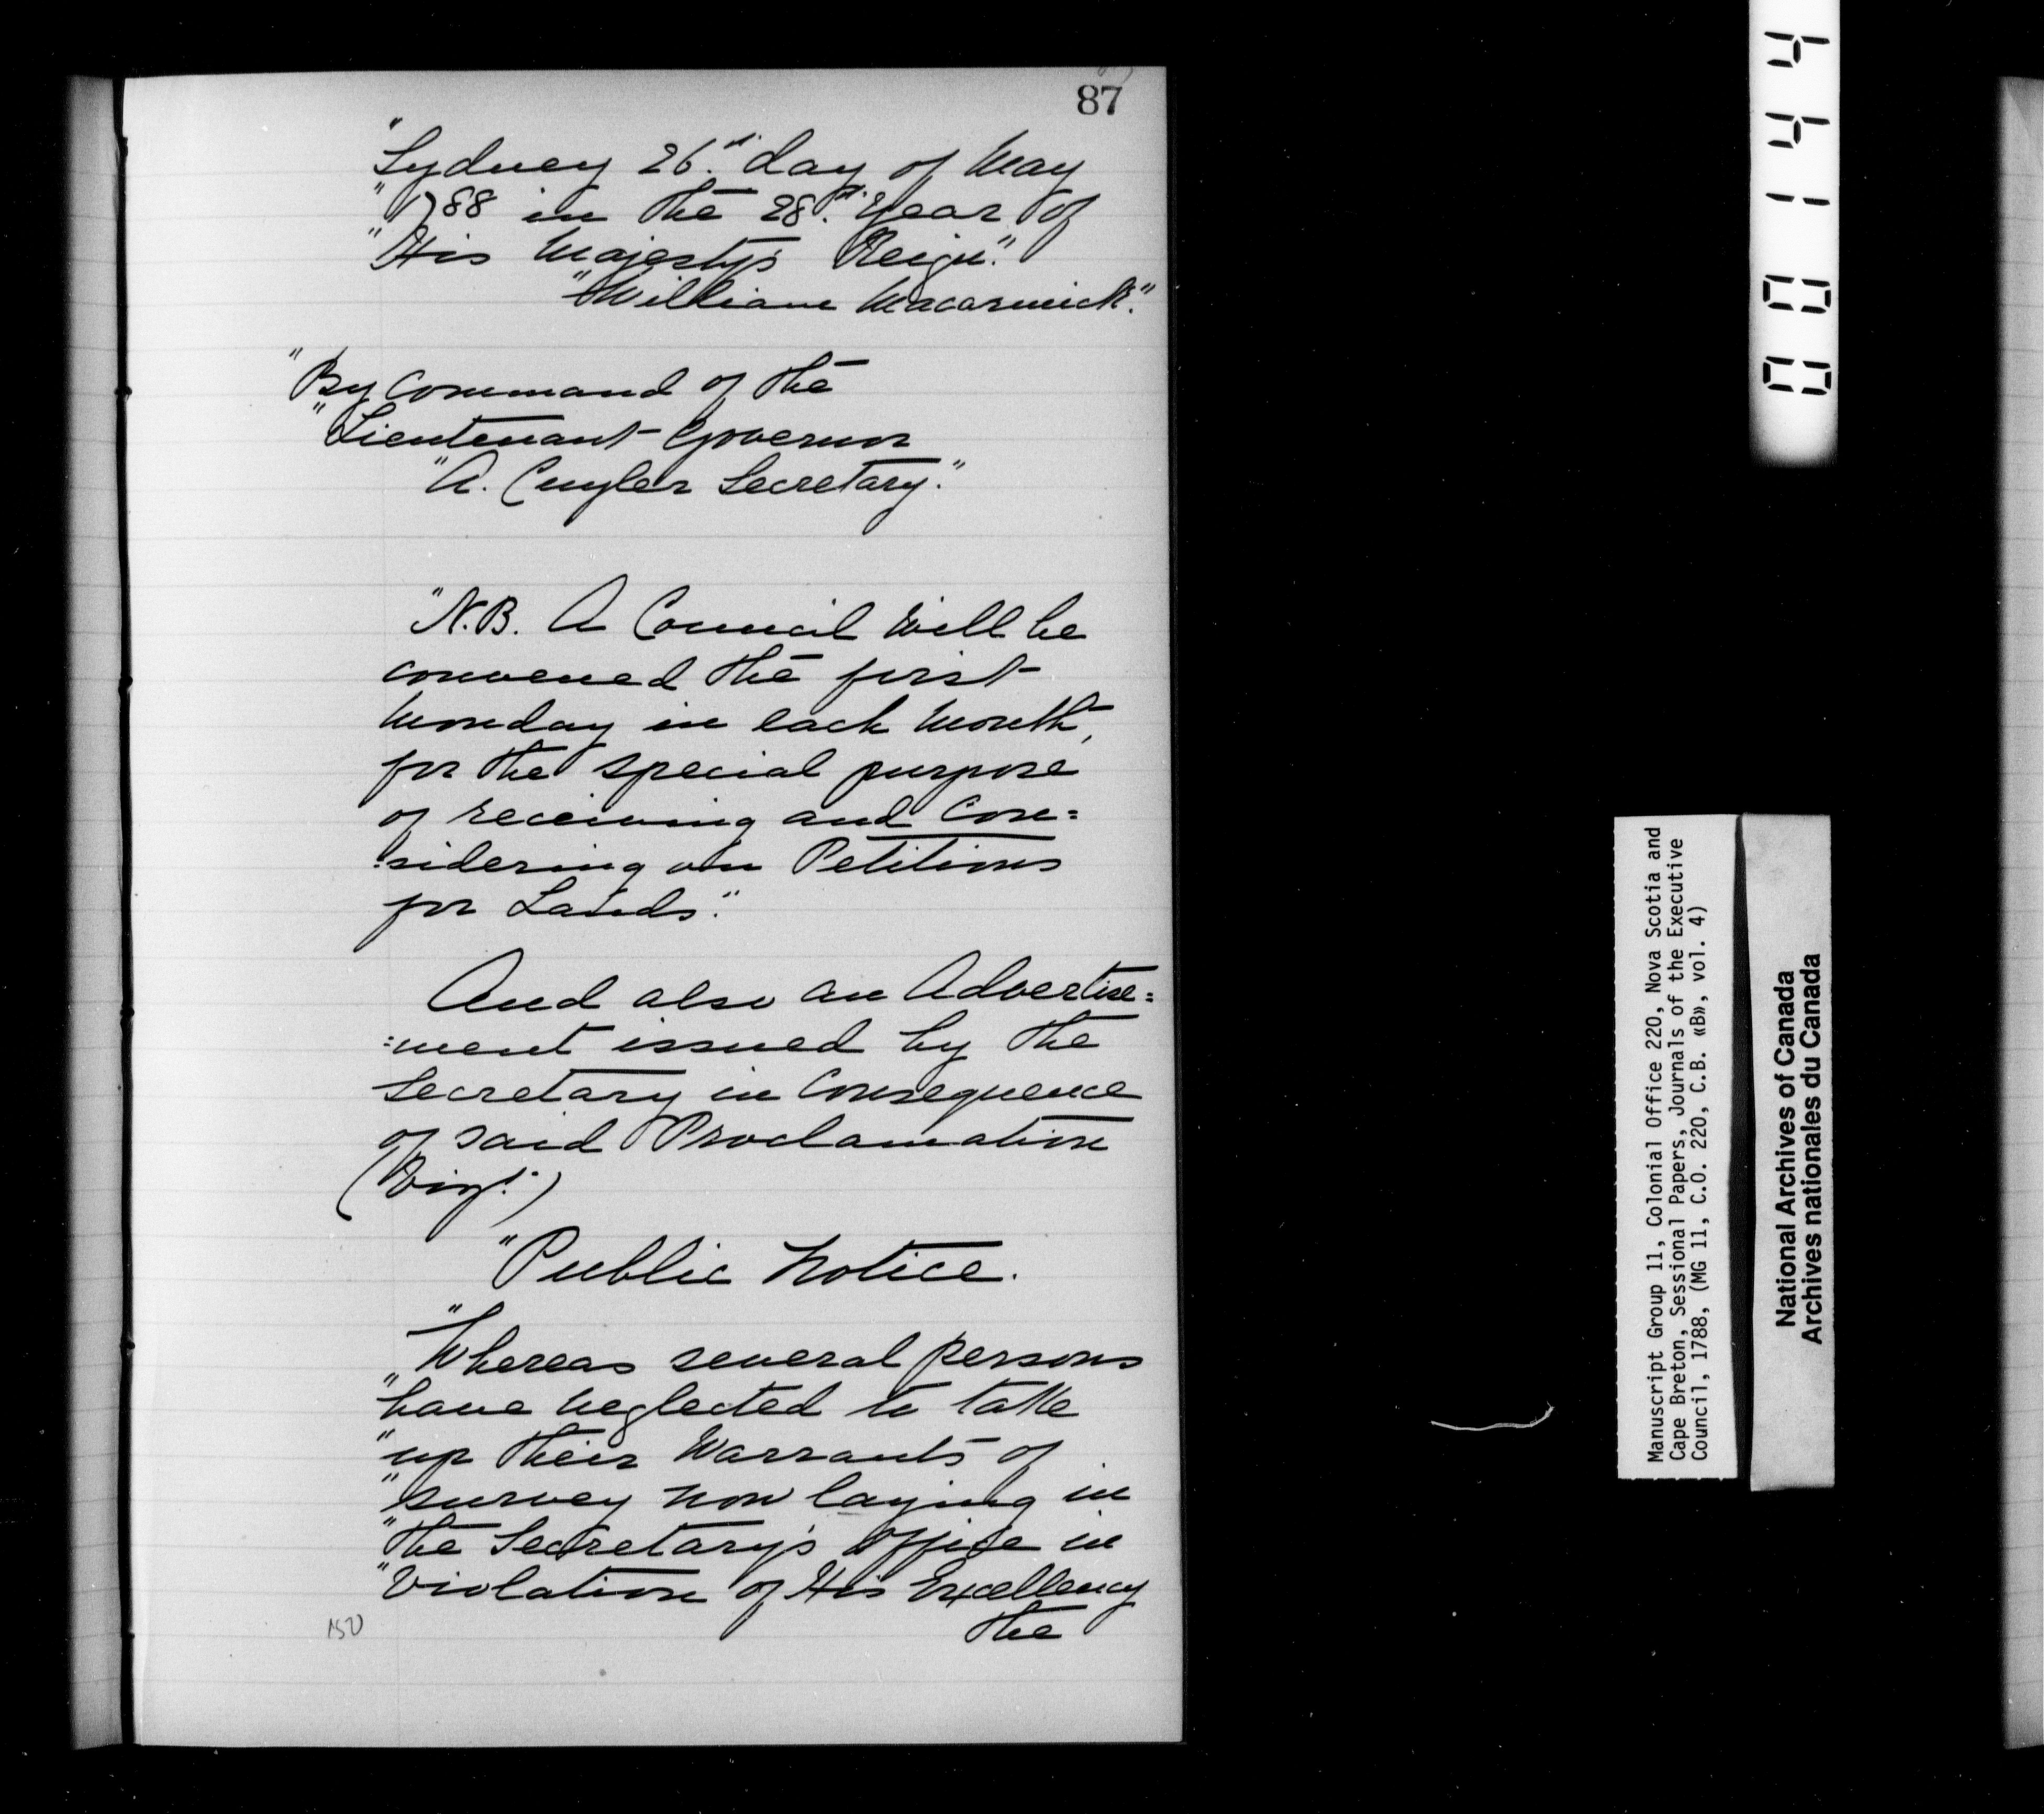 87
"Sydney 26.th day of May
"1788 in the 28.th Year of
"His Majesty's Reign."
"William Macarmick."
"By Command of the
"Lieutenant Governor
"A. Cuyler Secretary."
"N.B. A Council will be
convened the first
Monday in each Month,
for the special purpose
of receiving and Con=
:sidering on Petitions
for Lands."
And also an Advertise=
:ment issued by the
Secretary in Consequence
of said Proclamation
(Vizt.)
"Public Notice.
"Whereas several persons
"have neglected to take
"up their Warrants of
"survey now laying in
"the Secretary's office in
"Violation of His Excellency
the
150
001144
Manuscript Group 11, Colonial Office 220, Nova Scotia and
Cape Breton, Sessional Papers, Journals of the Executive
Council, 1788, (MG 11, C.O. 220, C.B. «B», vol. 4)
National Archives of Canada
Archives nationales du Canada